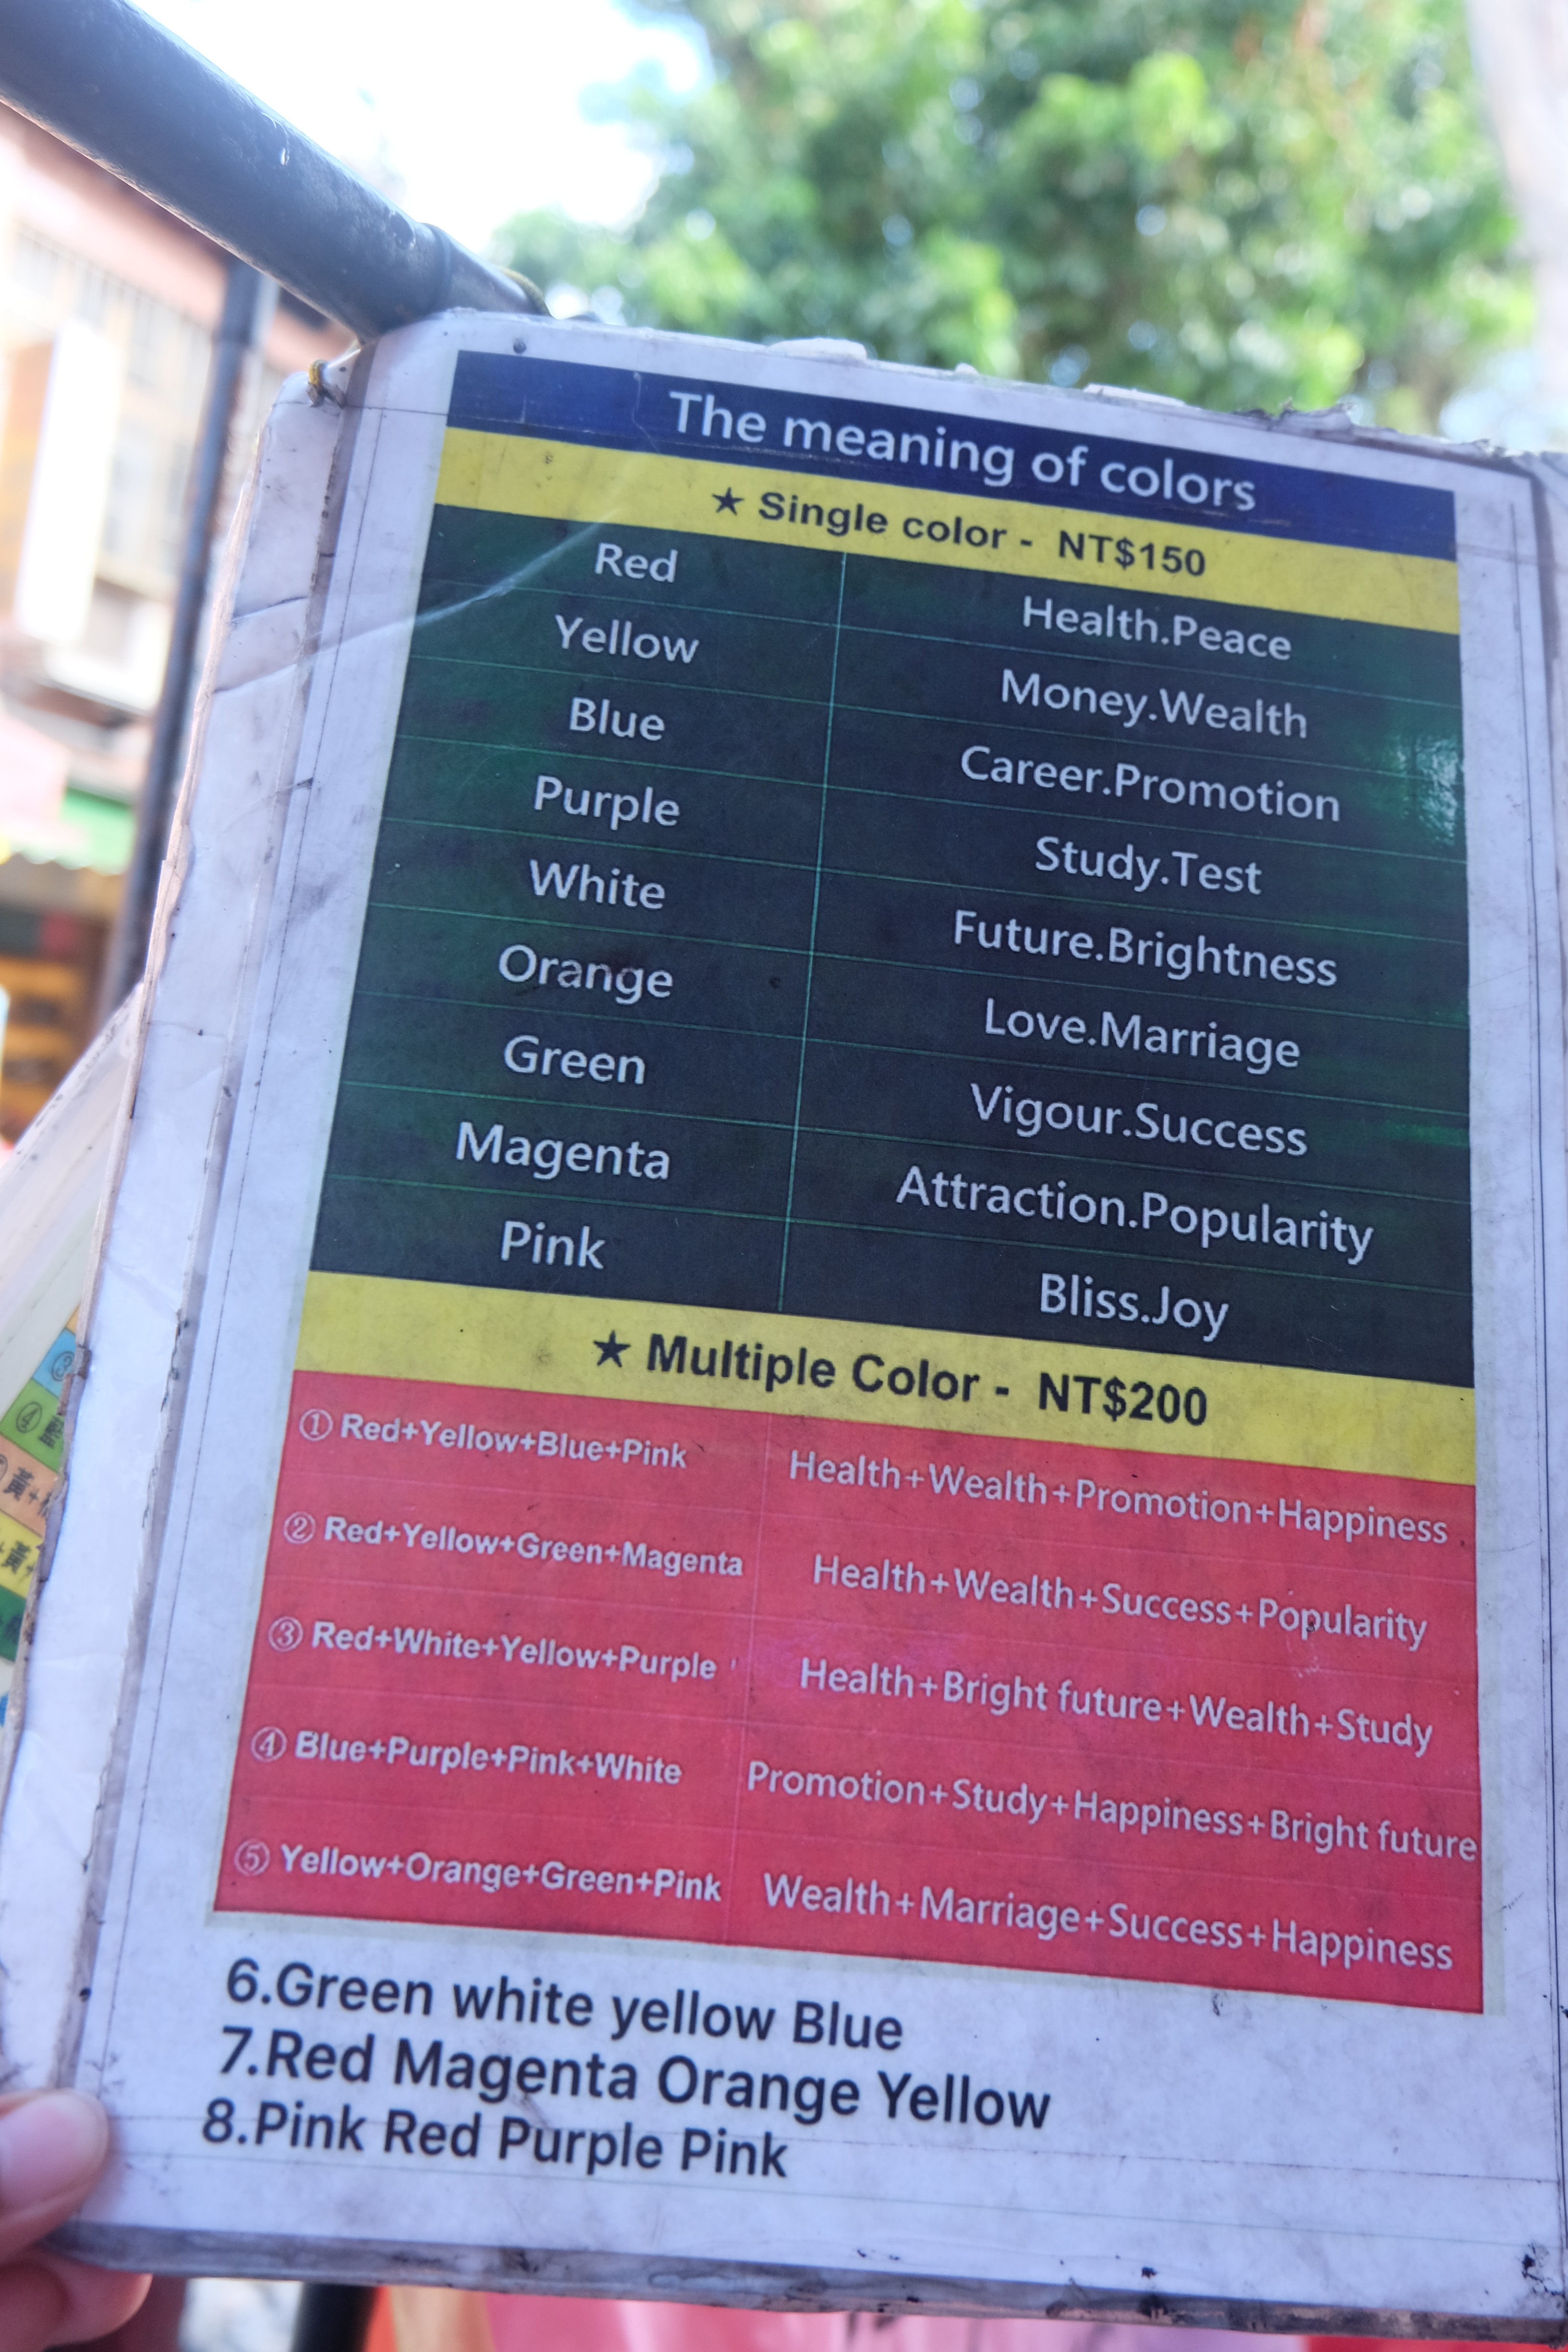 The meaning of colors
★ Single color - NT$150
Red Health.Peace
Yellow Money.Wealth
Blue Career.Promotion
Purple Study.Test
White Future.Brightness
Orange Love.Marriage
Green Vigour.Success
Magenta Attraction.Popularity
Pink Bliss.Joy
★ Multiple Color - NT$200
① Red+Yellow+Blue+Pink Health+Wealth+Promotion+Happiness
② Red+Yellow+Green+Magenta Health+Wealth+Success+Popularity
③ Red+White+Yellow+Purple Health+Bright future+Wealth+Study
④ Blue+Purple+Pink+White Promotion+Study+Happiness+Bright future
⑤ Yellow+Orange+Green+Pink Wealth+Marriage+Success+Happiness
6.Green white yellow Blue
7.Red Magenta Orange Yellow
8.Pink Red Purple Pink
③
④
黃+
+黃+